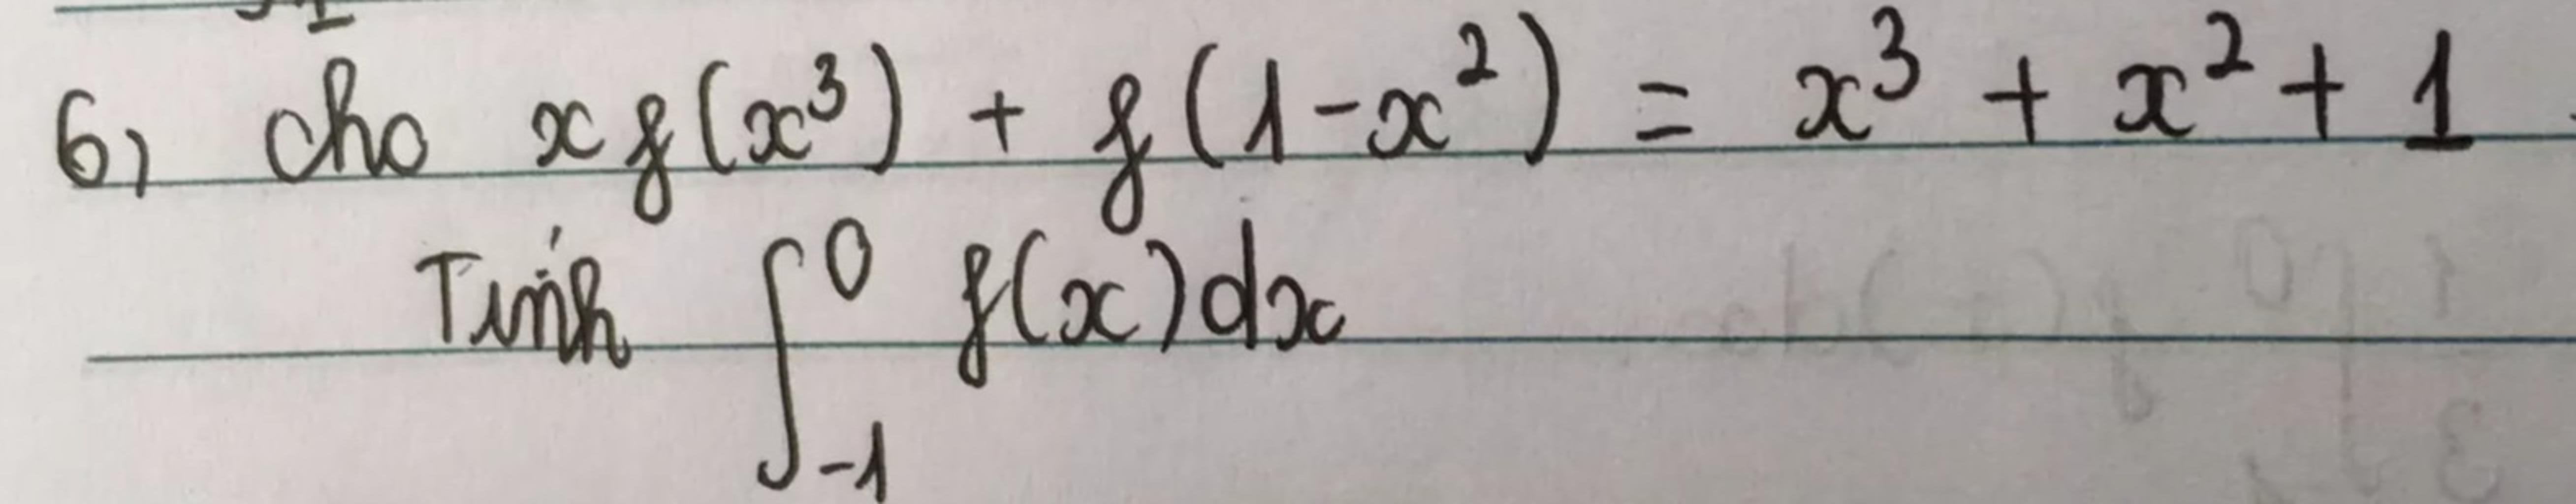 6, Cho x f(x³) + f(1-x²) = x³ + x² + 1
Tính ∫₋₁⁰ f(x)dx